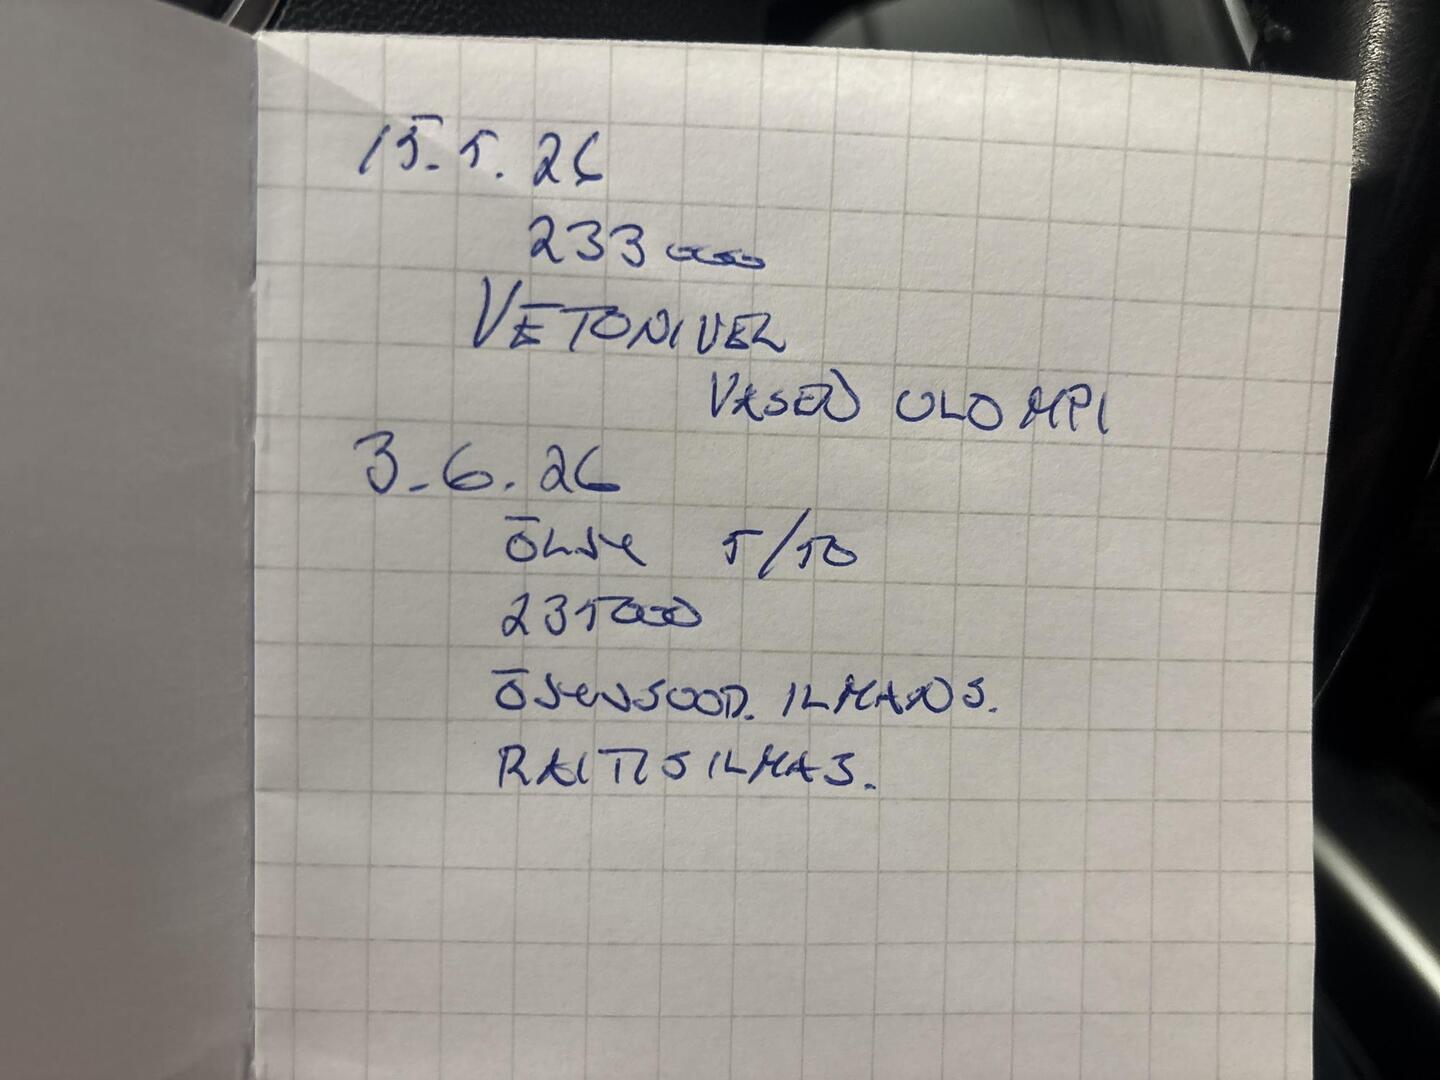 15.5.26
233 000
VETONIVEL
VASEN ULOMPI
3.6.26
ÖLJY 5/50
235000
ÖJYNSUOD. ILMANS.
RAITISILMAS.